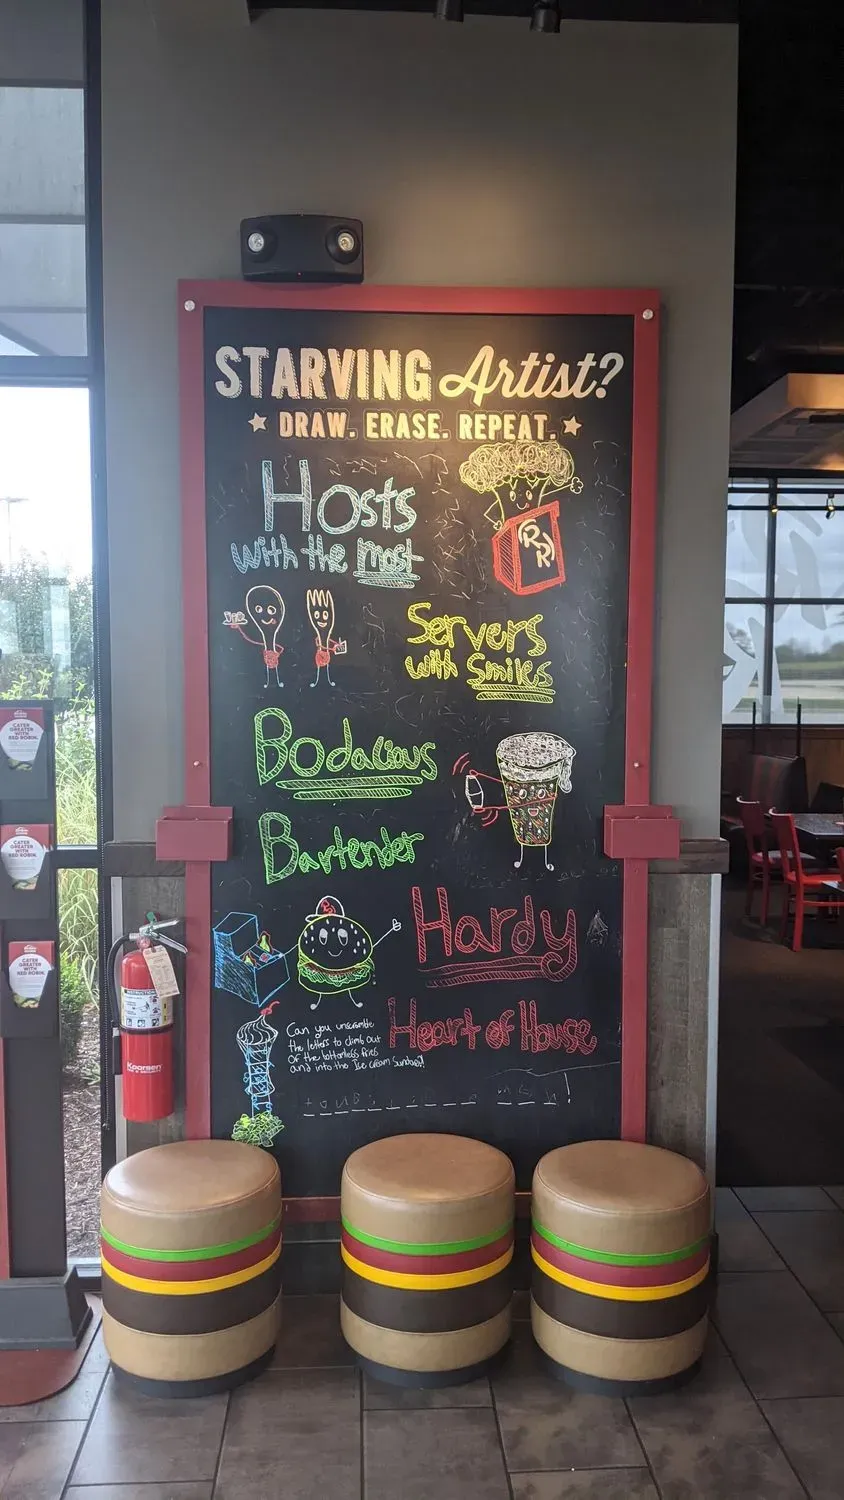 STARVING Artist?
DRAW. ERASE. REPEAT.
Hosts
with the most
RR
Servers
with Smiles
Bodacious
Bartender
Hardy
Heart of House
Can you unscramble
the letters to climb out
of the bottomless fries
and into the Ice cream Sundae?!
CATER
GREATER
WITH
RED ROBIN.
CATER
GREATER
WITH
RED ROBIN.
CATER
GREATER
WITH
RED ROBIN.
INSTRUCTIONS
Koorsen